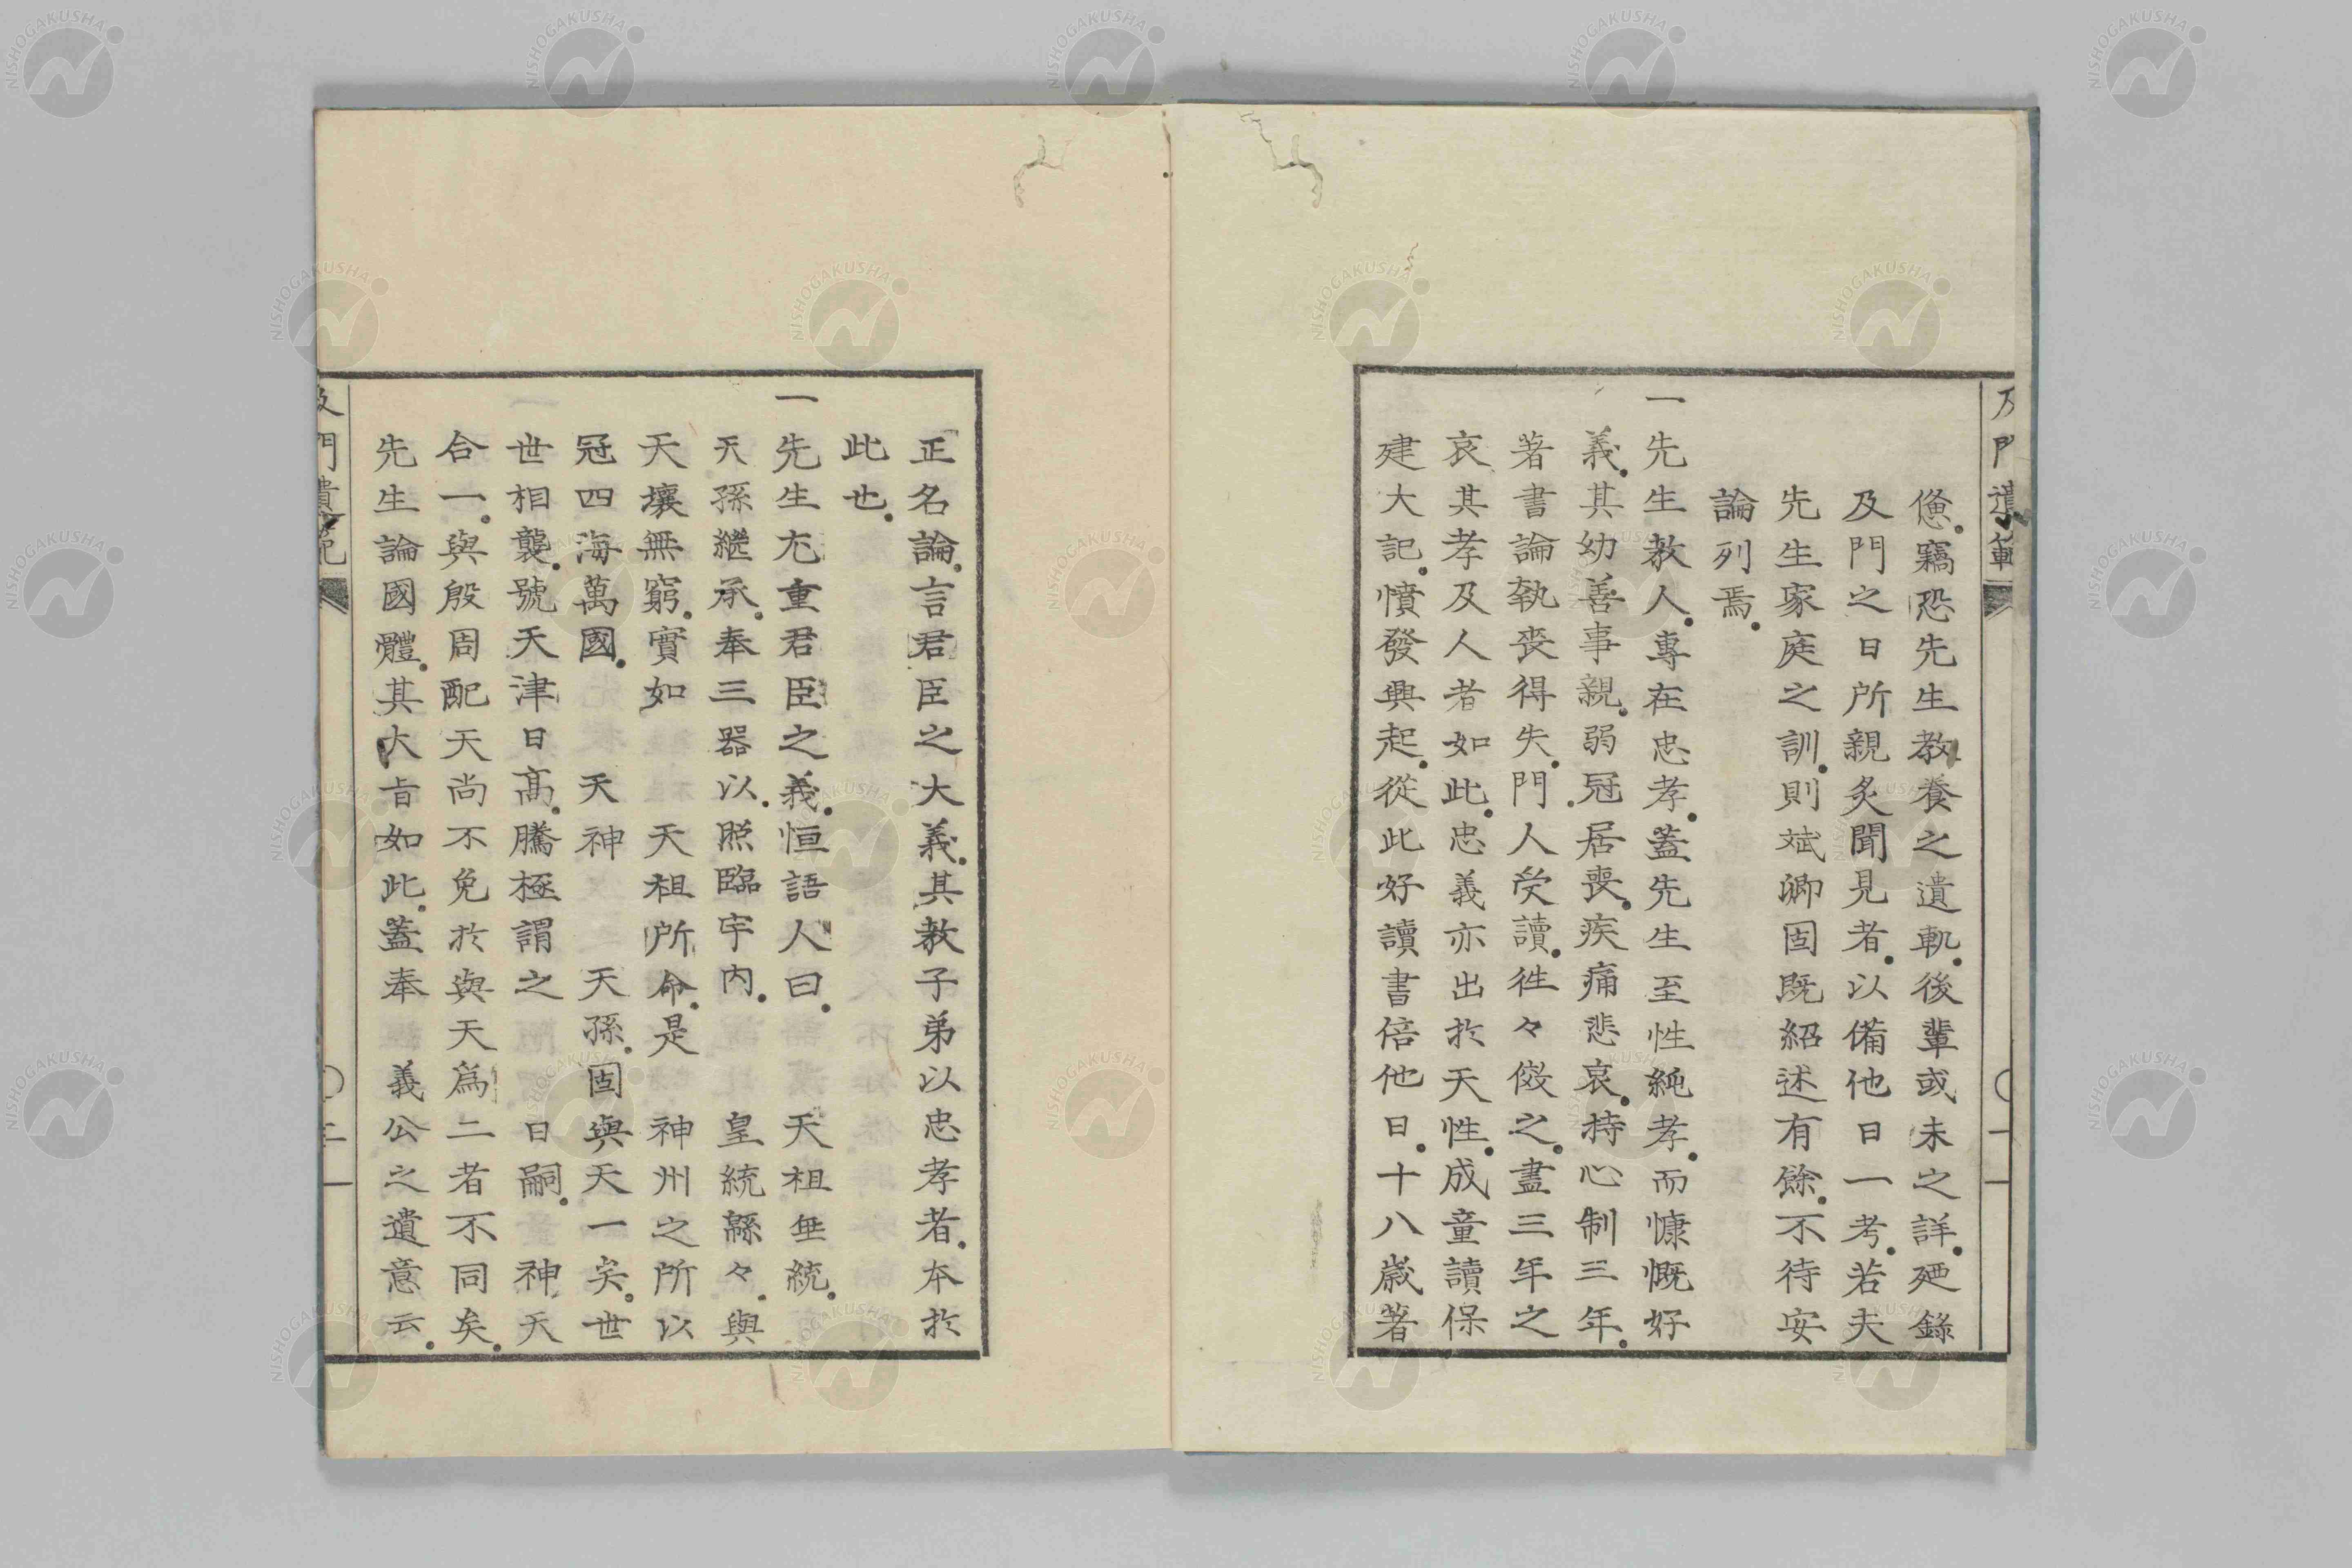 及門遺範
一
僡。竊恐先生教養之遺軌。後輩或未之詳。廼錄
及門之日所親炙聞見者。以備他日一考。若夫
先生家庭之訓。則斌卿固既紹述有餘。不待安
論列焉。
一先生教人。專在忠孝。蓋先生至性純孝。而慷慨好
義。其幼善事親。弱冠居喪。疾痛悲哀。持心制三年。
著書論執喪得失。門人受讀。徃々倣之。盡三年之
哀其孝及人者如此。忠義亦出於天性。成童讀保
建大記。憤發興起。從此好讀書倍他日。十八歲著
正名論。言君臣之大義。其教子弟以忠孝者。本於
此也。
一先生尤重君臣之義。恒語人曰。天祖垂統。
天孫繼承。奉三器以。照臨宇内。皇統緜々。與
天壤無窮。實如天祖所命。是神州之所以
冠四海萬國。天神天孫。固與天一矣。世
世相襲。號天津日高。騰極謂之日嗣。神天
合一。與殷周配天尚不免於與天爲二者不同矣。
先生論國體。其大旨如此。蓋奉義公之遺意云。
及門遺範
二
NISHOGAKUSHA